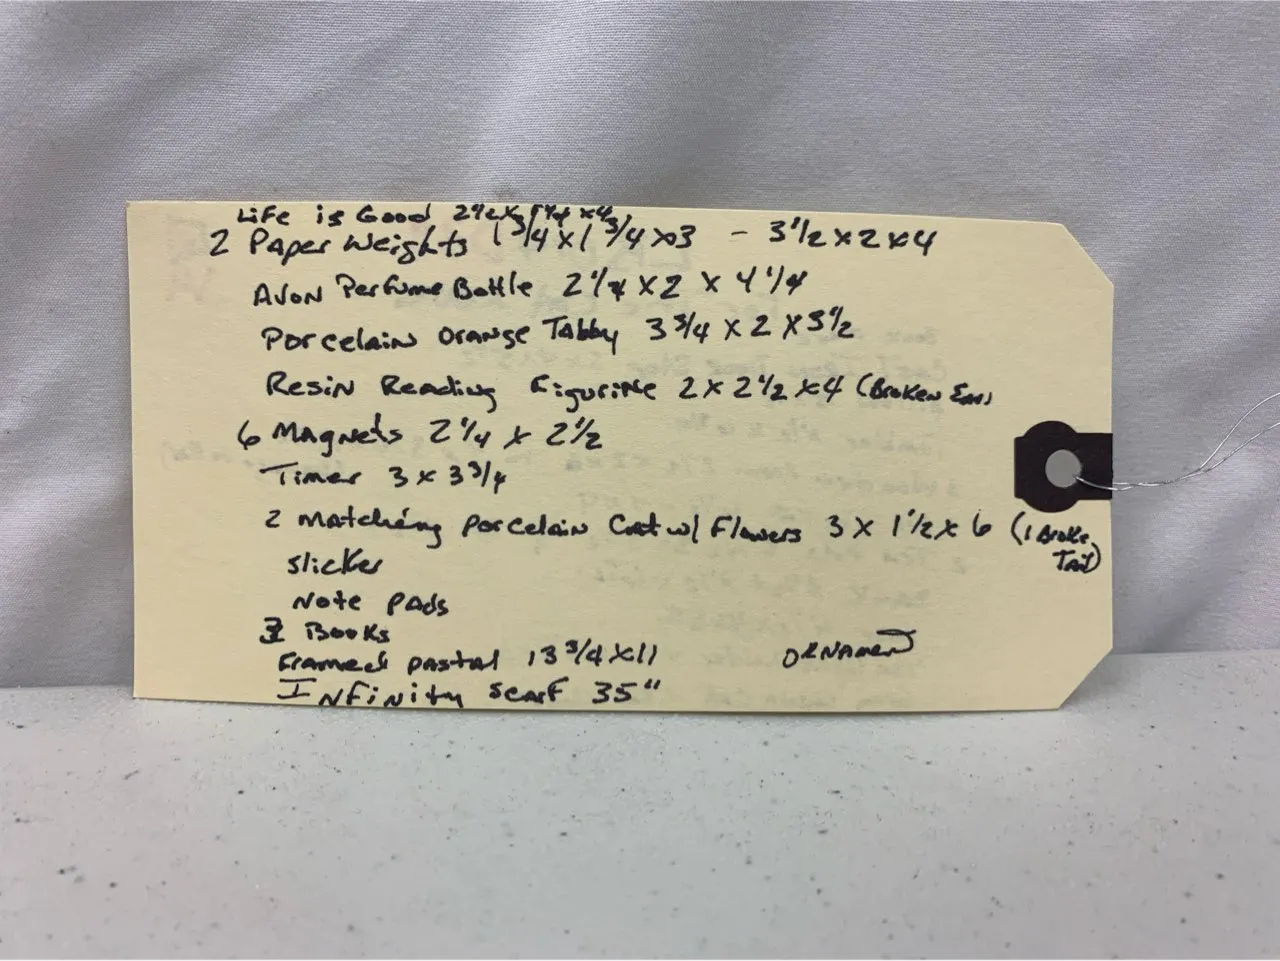 Life is Good 2 1/2 x
2 Paper Weights 1 3/4 x 1 3/4 x 3 - 3 1/2 x 2 x 4
Avon Perfume Bottle 2 1/4 x 2 x 4 1/4
Porcelain Orange Tabby 3 3/4 x 2 x 3 1/2
Resin Reading Figurine 2 x 2 1/2 x 4 (Broken Ear)
6 Magnets 2 1/4 x 2 1/2
Timer 3 x 3 3/4
2 Matching Porcelain Cat w/ Flowers 3 x 1 1/2 x 6 (1 Broke
Tail)
slicker
Note Pads
Books
Framed pastal 13 3/4 x 11 ORNAMENT
Infinity Scarf 35"